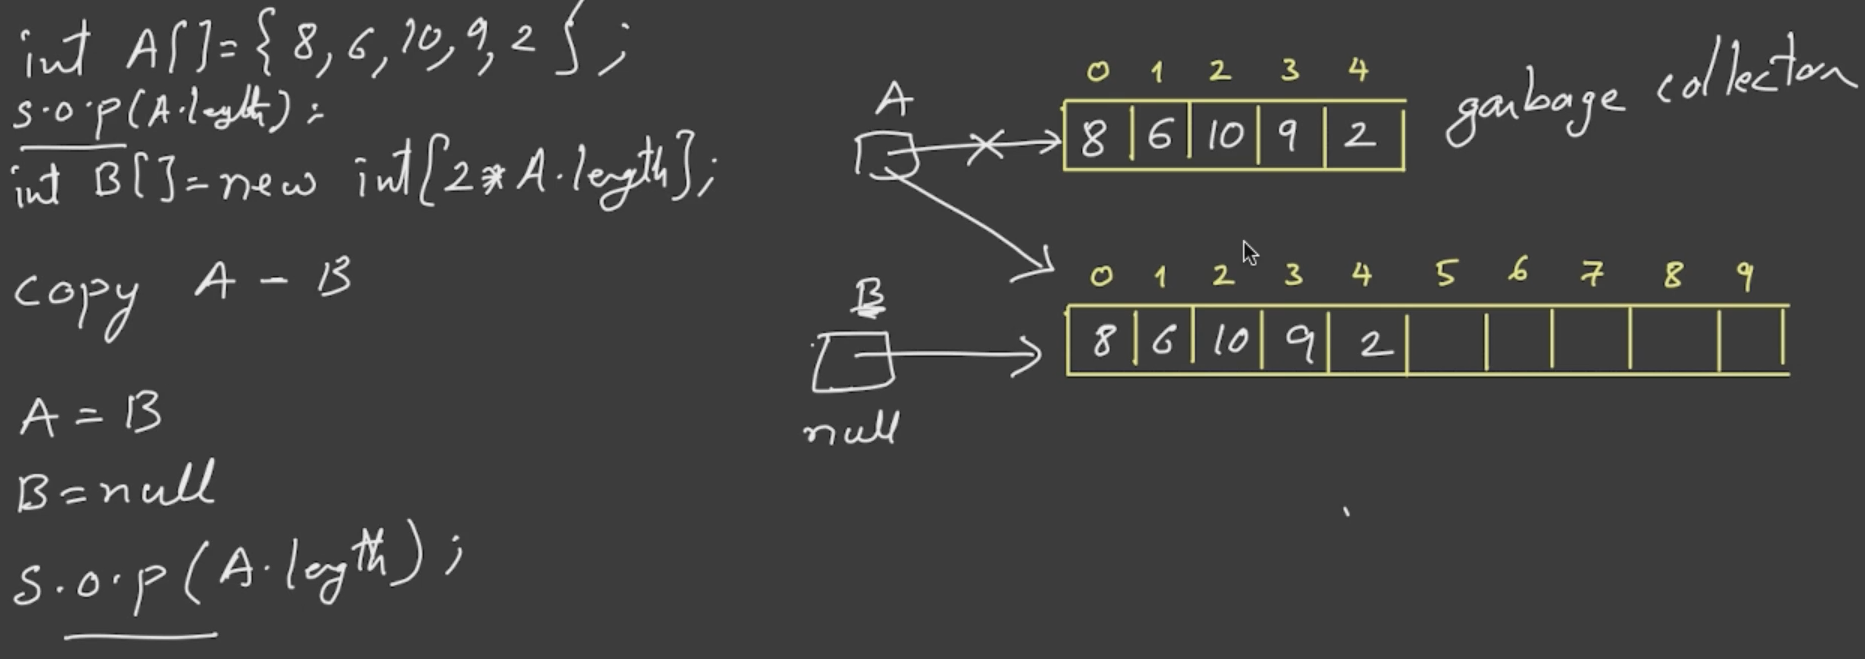 int A[]={8,6,10,9,2};
S.o.p(A.length);
int B[]=new int[2*A.length];
copy A - B
A = B
B=null
S.o.p(A.length);
A
0 1 2 3 4
8 6 10 9 2
garbage collection
B
null
0 1 2 3 4 5 6 7 8 9
8 6 10 9 2